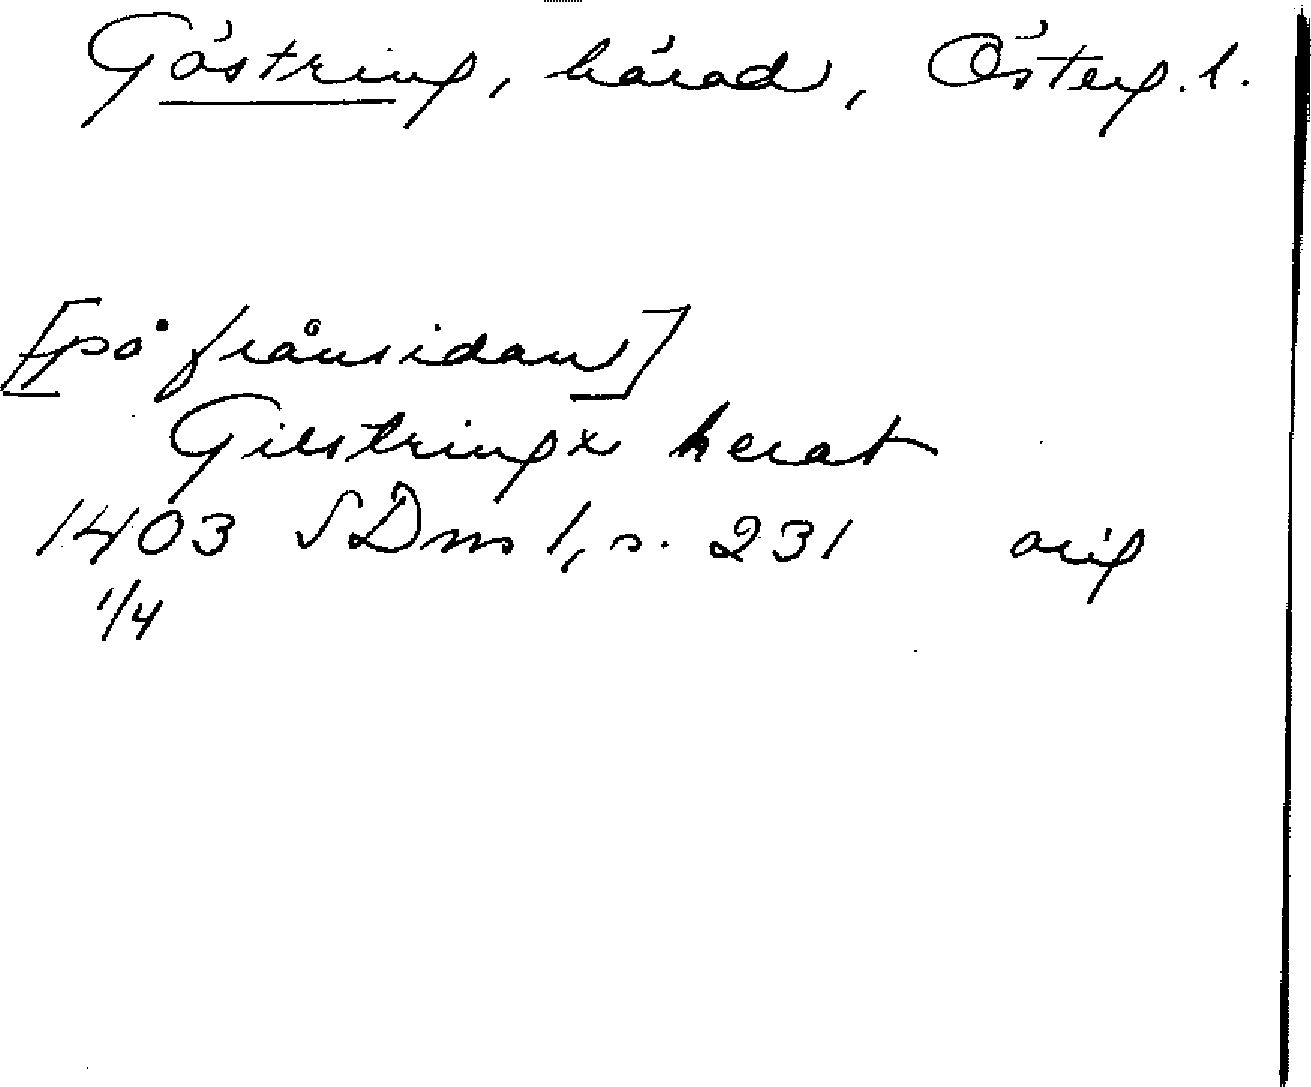 Göstring, härad, Österg. l.
[på frånsidan]
Gilstringx herat
1403 SDns 1, s. 231 orig
1/4